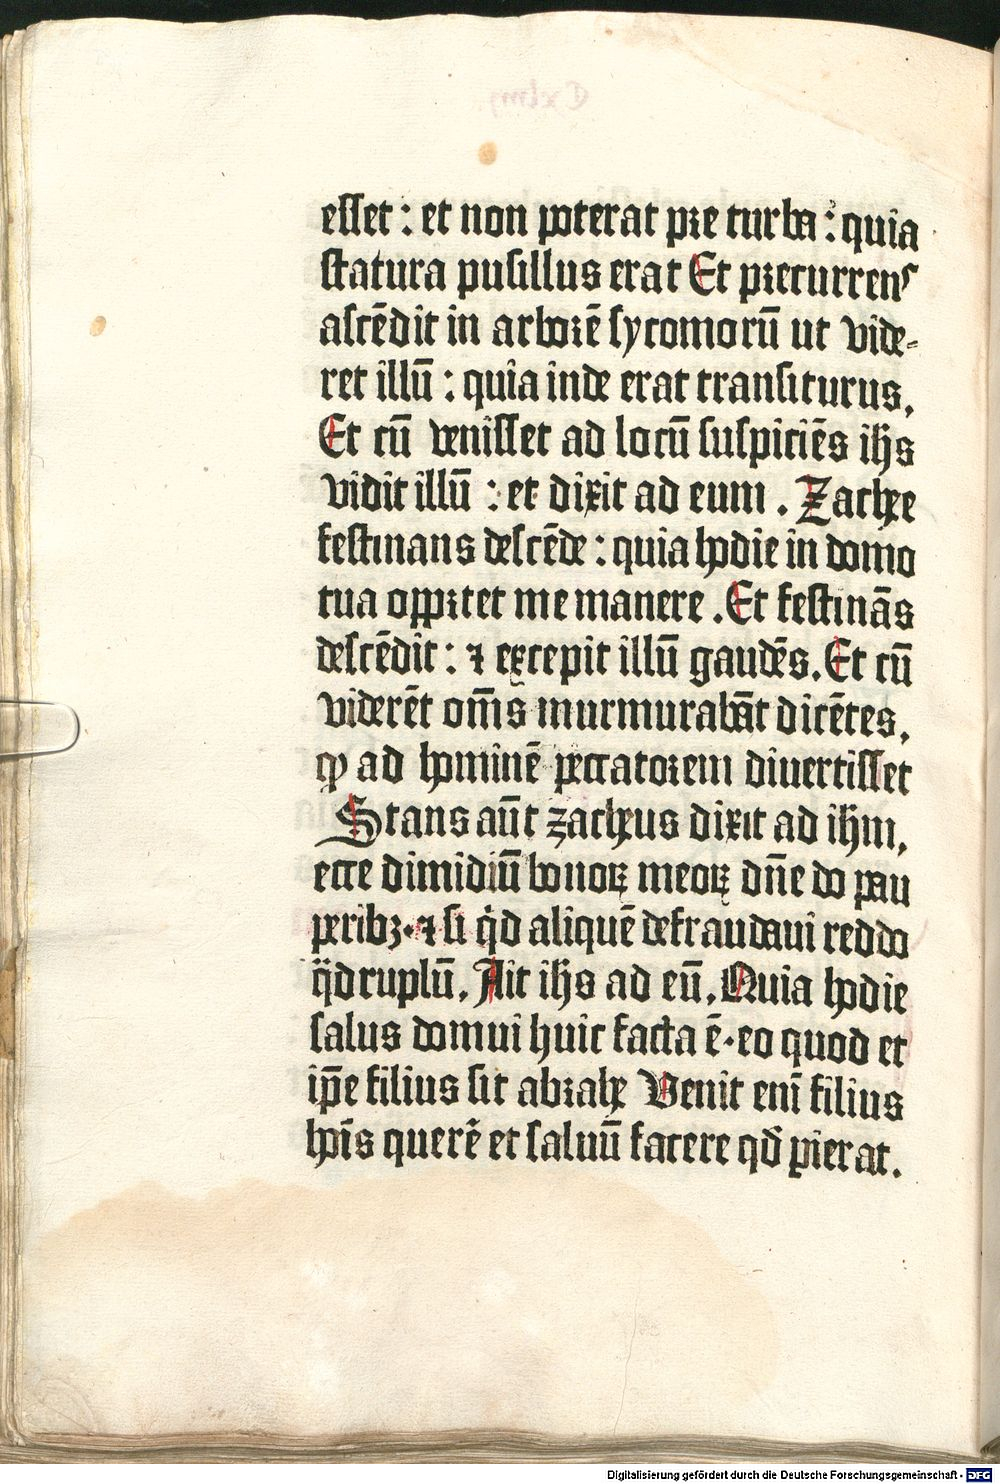 esset : et non poterat pre turba : quia
statura pusillus erat Et precurrens
ascēdit in arborē sycomorū ut vide-
ret illū : quia inde erat transiturus.
Et cū venisset ad locū suspiciēs ihs
vidit illū : et dixit ad eum . Zachee
festinans descēde : quia hodie in domo
tua oꝑꝑrtet me manere . Et festinās
descēdit : ⁊ excepit illū gaudēs. Et cū
viderēt om̄s murmurabāt dicētes,
ꝙ ad hominē peccatorem diuertisset
Stans aūt zacheus dixit ad ihm,
ecce dimidiū bonoꝝ meoꝝ dn̄e do pau
peribꝫ · ⁊ si qͥd aliquē defraudaui reddo
qͣdruplū. Ait ihs ad eū. Quia hodie
salus domui huic facta ē · eo quod et
ip̄e filius sit abrahe Venit enī filius
hoīs querē et saluū facere qd̄ ꝑierat.
Digitalisierung gefördert durch die Deutsche Forschungsgemeinschaft - DFG